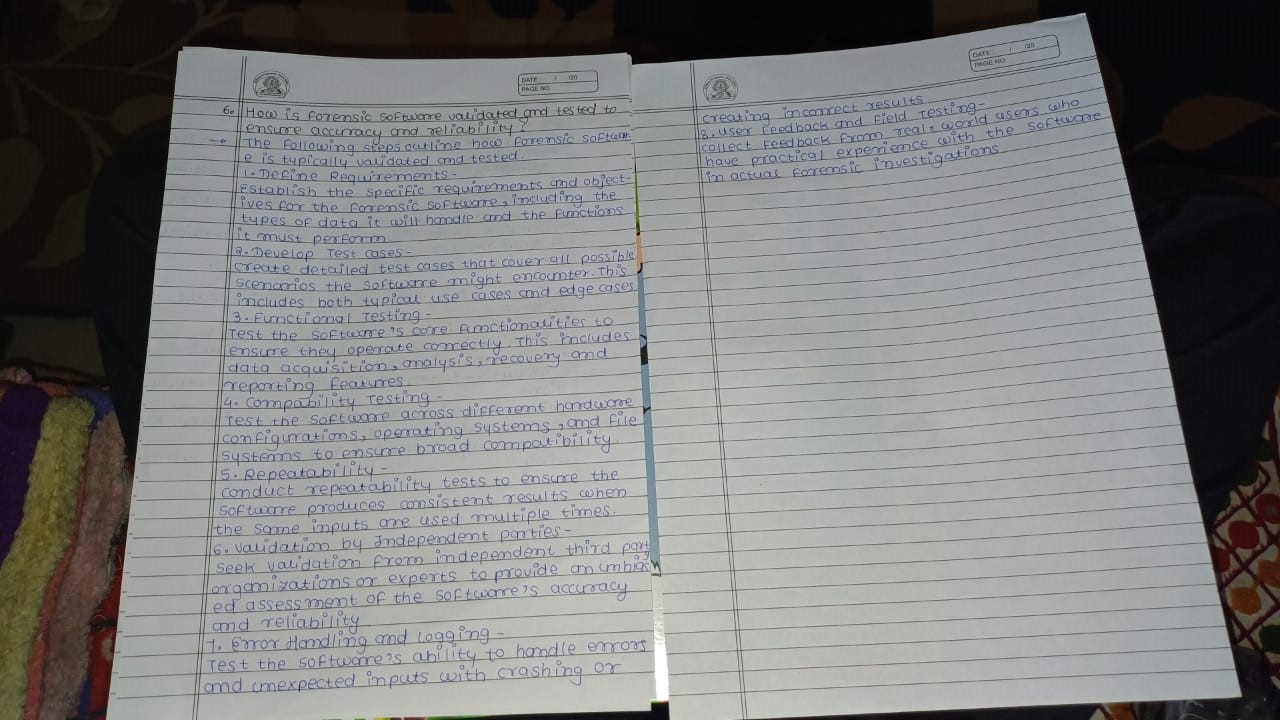 DATE: / /20
PAGE NO.
6. How is forensic software validated and tested to
ensure accuracy and reliability?
→ The following steps outline how forensic softwar
e is typically validated and tested.
1. Define Requirements -
Establish the specific requirements and object-
ives for the forensic software, including the
types of data it will handle and the functions
it must perform
2. Develop Test cases -
create detailed test cases that cover all possible
scenarios the software might encounter. This
includes both typical use cases and edge cases
3. Functional Testing -
Test the software's core functionalities to
ensure they operate correctly. This includes
data acquisition, analysis, recovery and
reporting features
4. Compability Testing -
Test the software across different hardware
configurations, operating systems, and file
systems to ensure broad compatibility.
5. Repeatability -
conduct repeatability tests to ensure the
software produces consistent results when
the same inputs are used multiple times.
6. Validation by Independent parties -
seek validation from independent third party
organizations or experts to provide an unbias
ed assessment of the software's accuracy
and reliability
7. Error Handling and Logging -
Test the software's ability to handle errors
and unexpected inputs with crashing or
DATE: / /20
PAGE NO.
creating incorrect results.
8. User Feedback and Field Testing -
collect feedback from real-world users who
have practical experience with the software
in actual forensic investigations